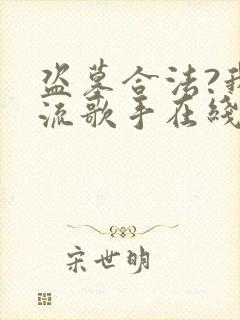 盗墓合法?我
流歌手在綫
宋世明